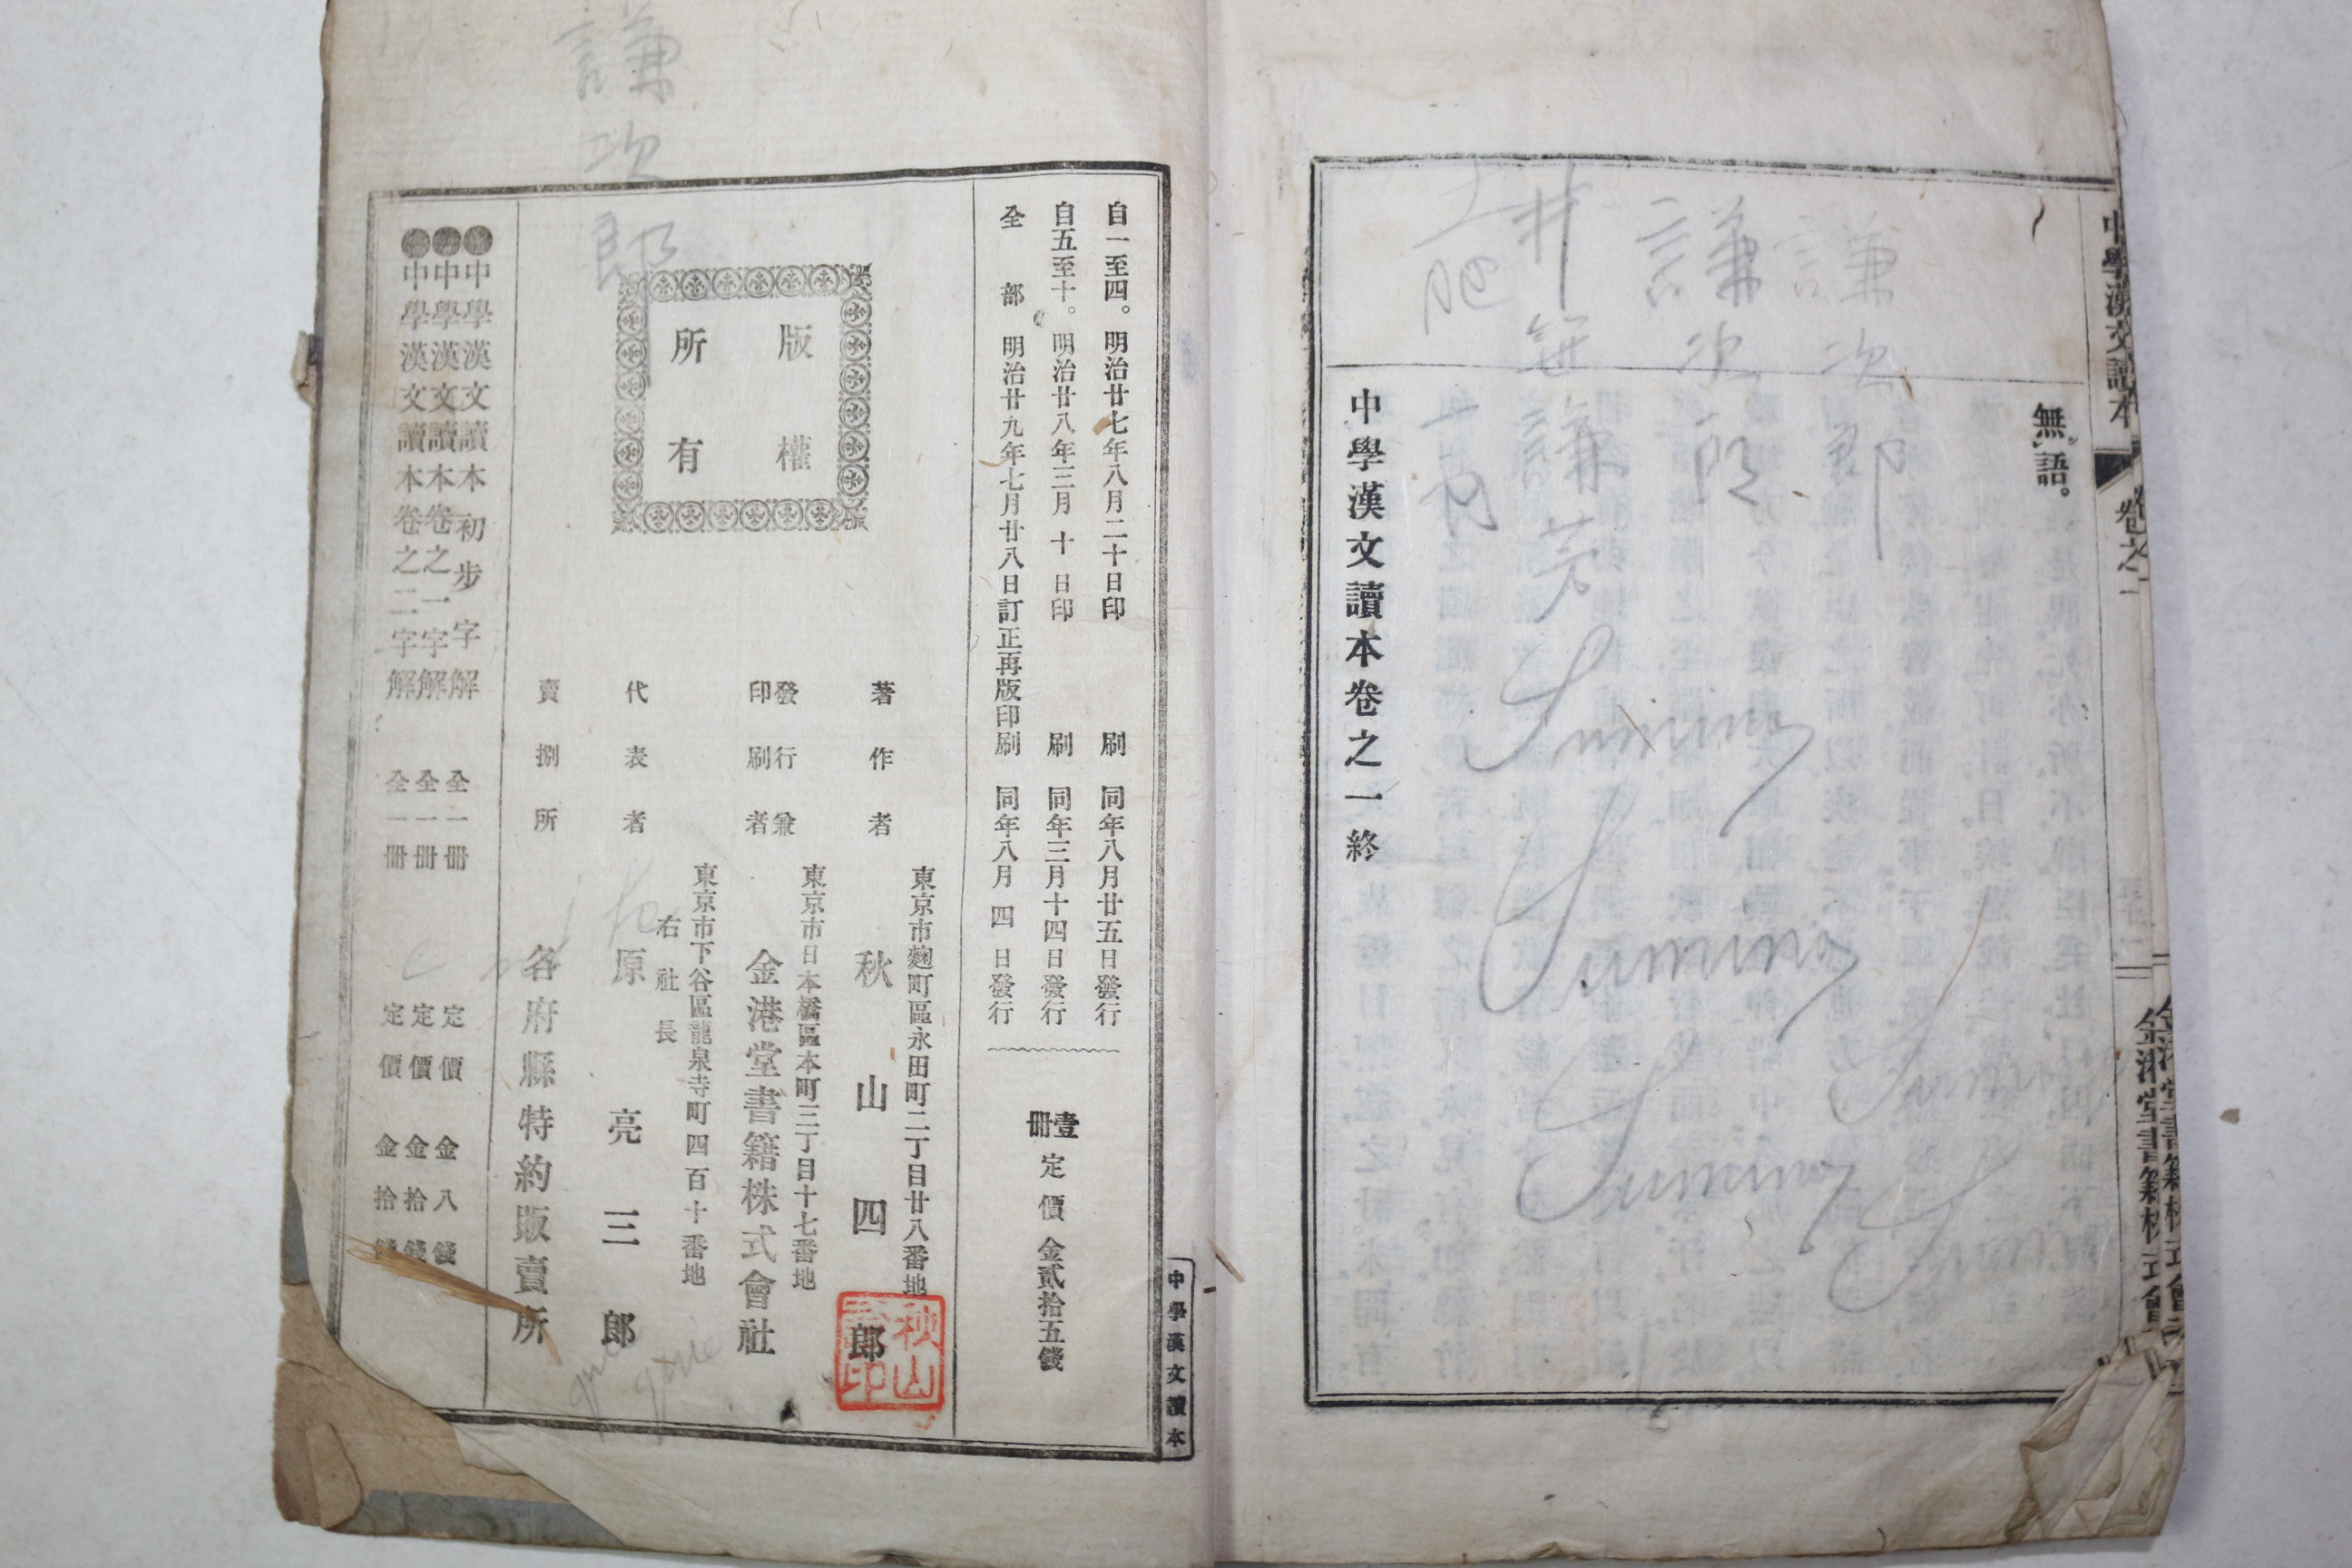 中學漢文讀本
卷之一
金港堂書籍株式會社
無語。
中學漢文讀本卷之一終
謙次郎
謙次郎
井
謙
土肥
中學漢文讀本
自一至四。明治廿七年八月二十日印刷 同年八月廿五日發行
自五至十。明治廿八年三月十日印刷 同年三月十四日發行
全部 明治廿九年七月廿八日訂正再版印刷 同年八月四日發行
壹冊定價金貳拾五錢
版權所有
東京市麴町區永田町二丁目廿八番地
著作者 秋山四郎
秋山
東京市日本橋區本町三丁目十七番地
發行兼印刷者 金港堂書籍株式會社
東京市下谷區龍泉寺町四百十番地
右社長
代表者 原亮三郎
賣捌所 各府縣特約販賣所
中學漢文讀本初步字解 全一冊 定價金八錢
中學漢文讀本卷之一字解 全一冊 定價金拾錢
中學漢文讀本卷之二字解 全一冊 定價金拾錢
謙次郎